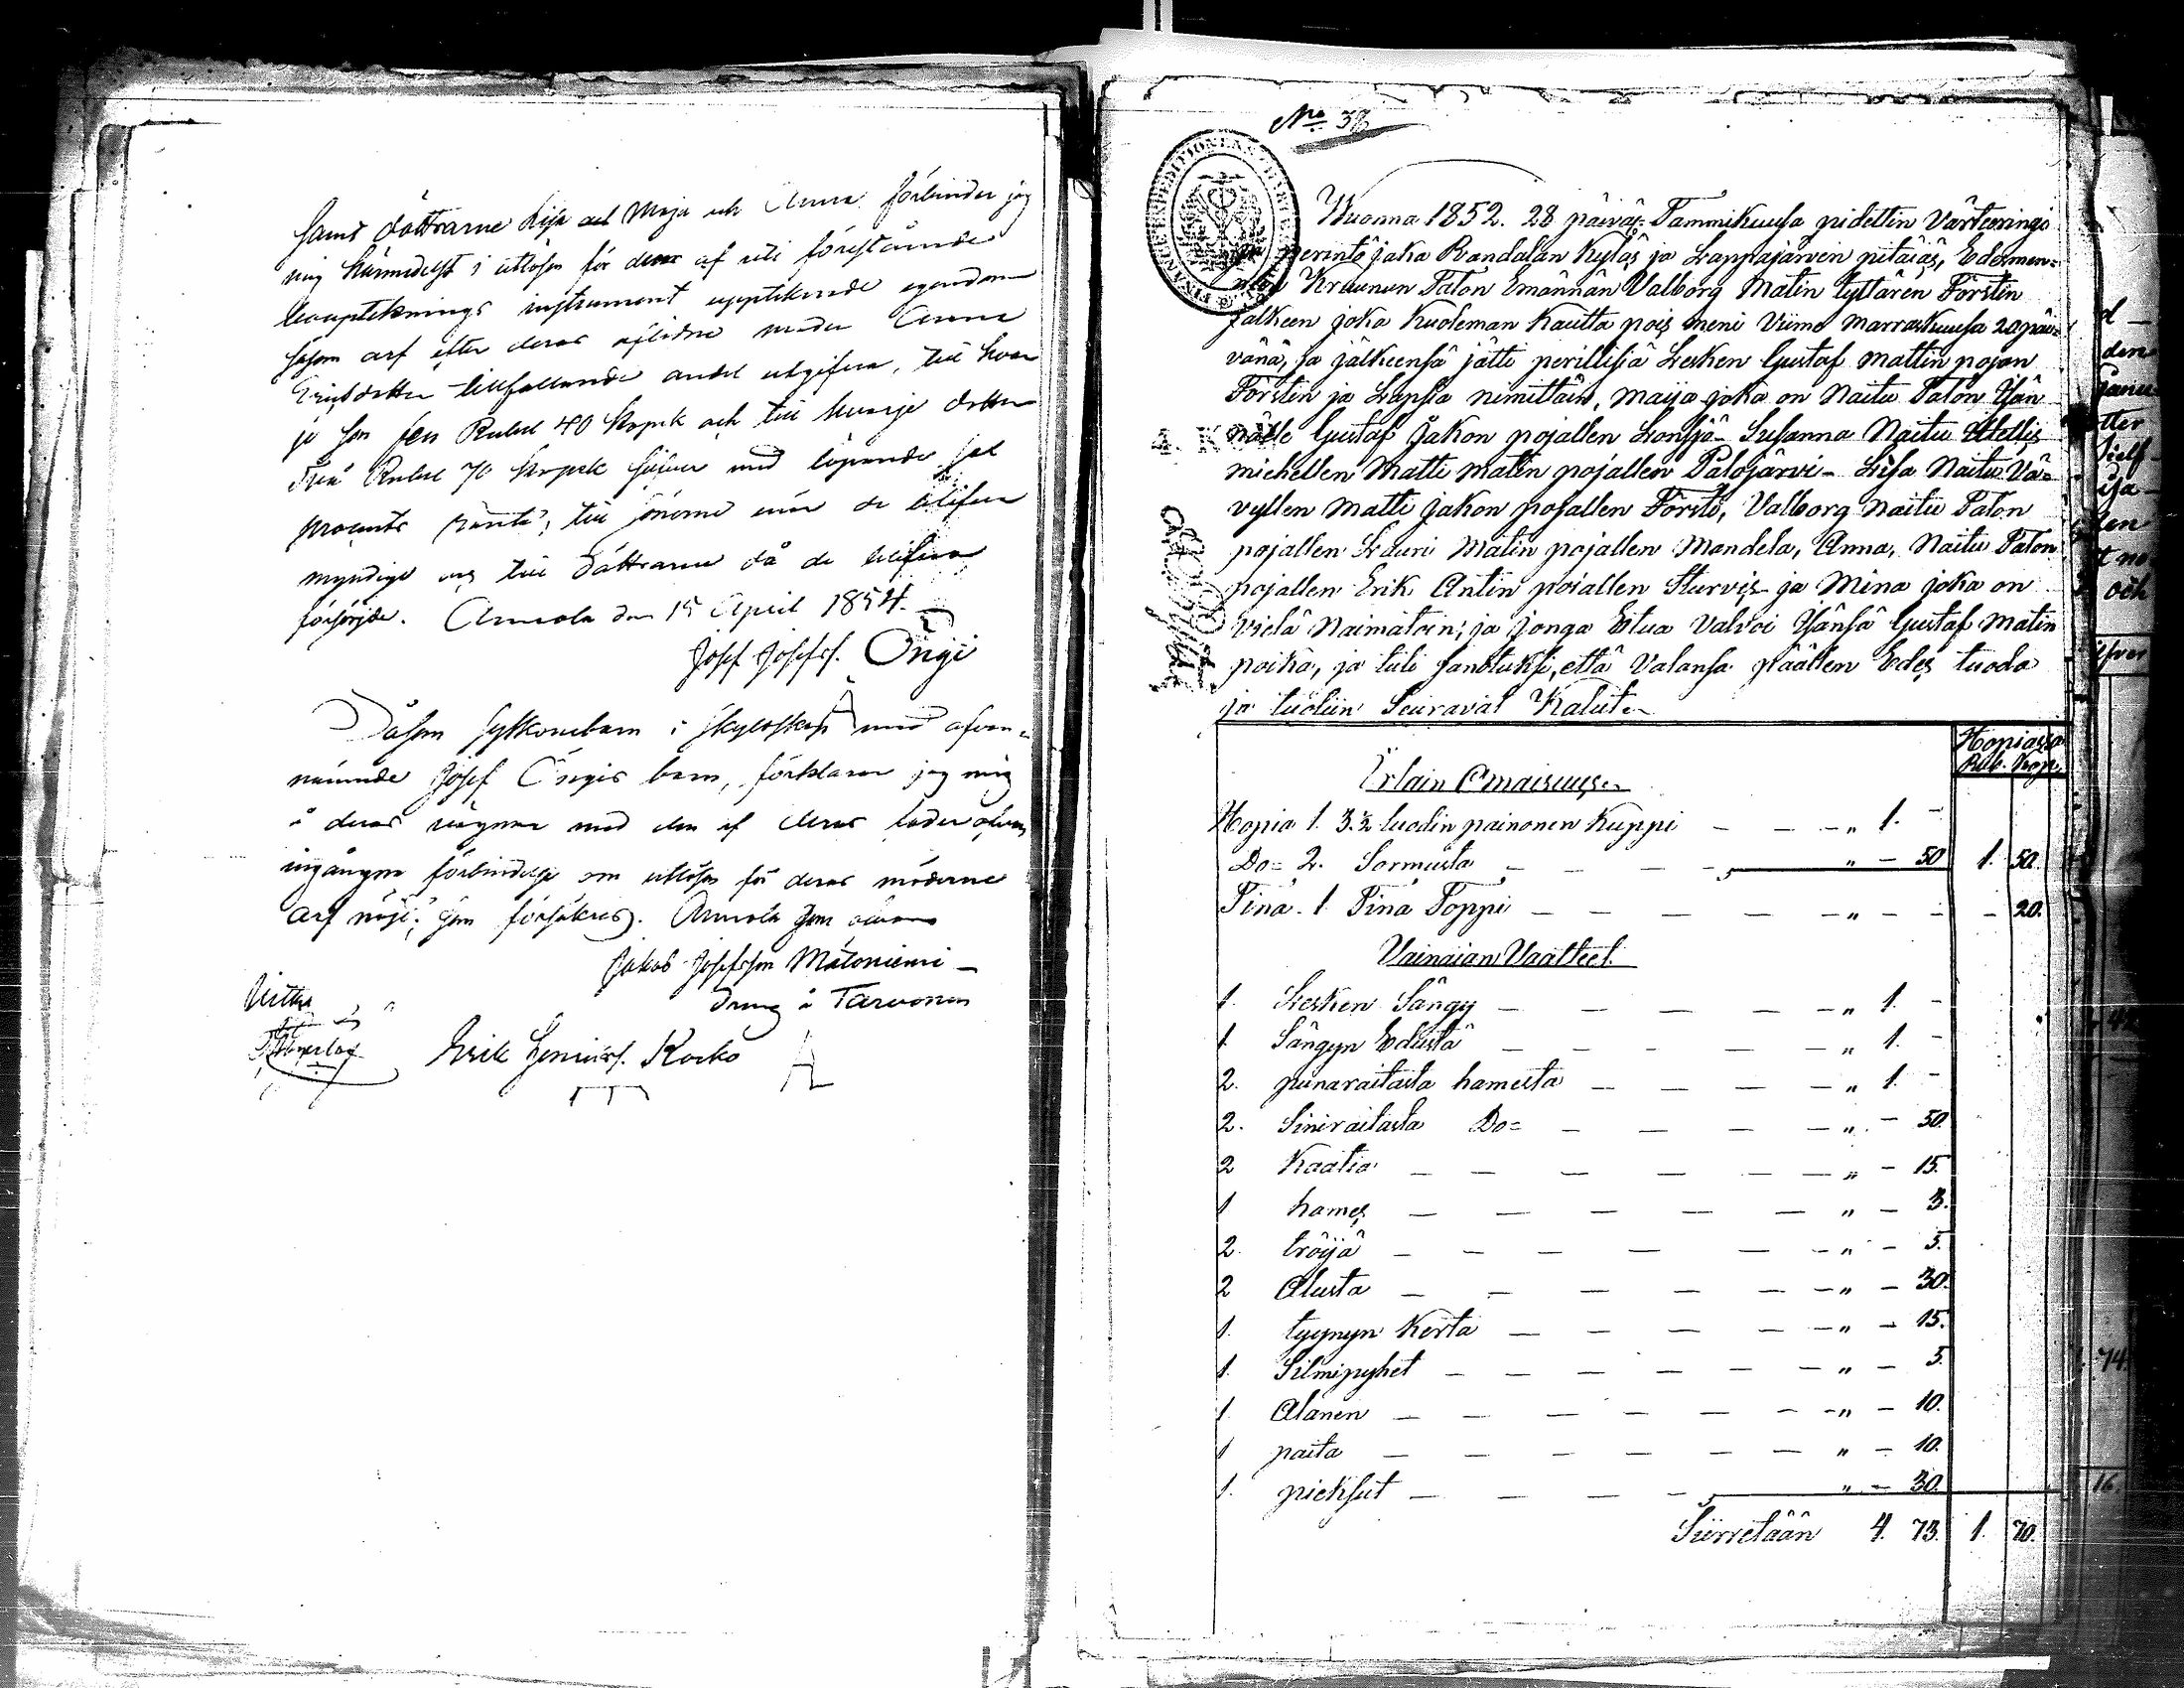 samt döttrarne Lisa och Maja och Anna förbinder jag
mig härmedelst i utlösen för deras af uti förestående
bouptecknings instrument upptecknade egendom
såsom arf efter deras aflidne moder Anna
Ericsdotter tillfallande andel utgifva, till hvar
je son fem Rubel 40 kopek och till hvarje dotter
Två Rubel 70 kopek silfver med löpande sex
procents ränta, till sönerne när de blifva
myndige och till döttrarne då de blifva
försörjde. Annola den 15 April 1854.
Josef Josefss. Öngi
Såsom syskonebarn i skyldskap med ofvan-
nämnde Josef Öngis barn, förklarar jag mig
å deras vägnar med den af deras fader ofvan
ingångne förbindelse om utlösen för deras möderne
arf nöjd; som försäkras. Annola som ofvan
Jakob Josefsson Mätoniemi
Dräng å Tarvonen
Vittna
Erik Henricss. Korko
No 38
Wuonna 1852. 28 päiväs Tammikuusa pidettin Värteeringi
ja perintö jaka Randalan Kyläs ja Lappajärven pitäiäs, Edesmen-
nen Kruunun Talon Emännän Valborg Matin tyttären Förstin
jälkeen joka Kuoleman Kautta pois meni Viime Marraskuusa 20 päi-
vänä, ja jälkeensä jätti perillisiä Lesken Gustaf Mattin pojan
Förstin ja Lapsia nimittäin, Maija joka on Naitu Talon Isän
nälle Gustaf Jakon pojallen Lonsjö- Susanna Naitu Itellis
miehellen Matti Matin pojallen Palojärvi- Lisa Naitu Vä-
vyllen Matti Jakon pojallen Försti, Valborg Naitu Talon
pojallen Lauri Matin pojallen Mandela, Anna, Naitu Talon
pojallen Erik Antin poiallen Sturvis ja Mina joka on
Vielä Naimatoin; ja jonga Etua Valvoi Isänsä Gustaf Matin
poika, ja tuli Sanotuksi, että Valansa päällen Edes tuoda
ja tuoliin Seuravat Kalut
Hopiassa
Rub. Kop.
Irtain Omaisuus
Hopia 1. 3.½ luodin painonen Kuppi — — — „ 1. —
Do= 2. Sormusta — — — — „ — 50 1. 50.
Tina. 1 Tina Toppi — — — — — — „ — — — 20.
Vainaian Vaatteet.
1. Lesken Sängy — — — — — „ 1. —
1 Sängyn Edusta — — — — — „ 1. —
2. punaraitasta hamesta — — — — „ 1. —
2. Siniraitasta Do= — — — — „ — 50.
2 Kaatia — — — — — — „ — 15.
1 hames — — — — — „ — 3.
2. tröijä — — — — — — „ — 5.
2 Alusta — — — — — „ — 30.
1. tyynyn Kerta — — — — — „ — 15.
1. Silmipyhet — — — — — — „ — 5.
1. Alanen — — — — — — — „ — 10.
1 paita — — — — — — „ — 10.
1. pieksut — — — — „ — 30.
Siirretään 4. 73. 1. 70.